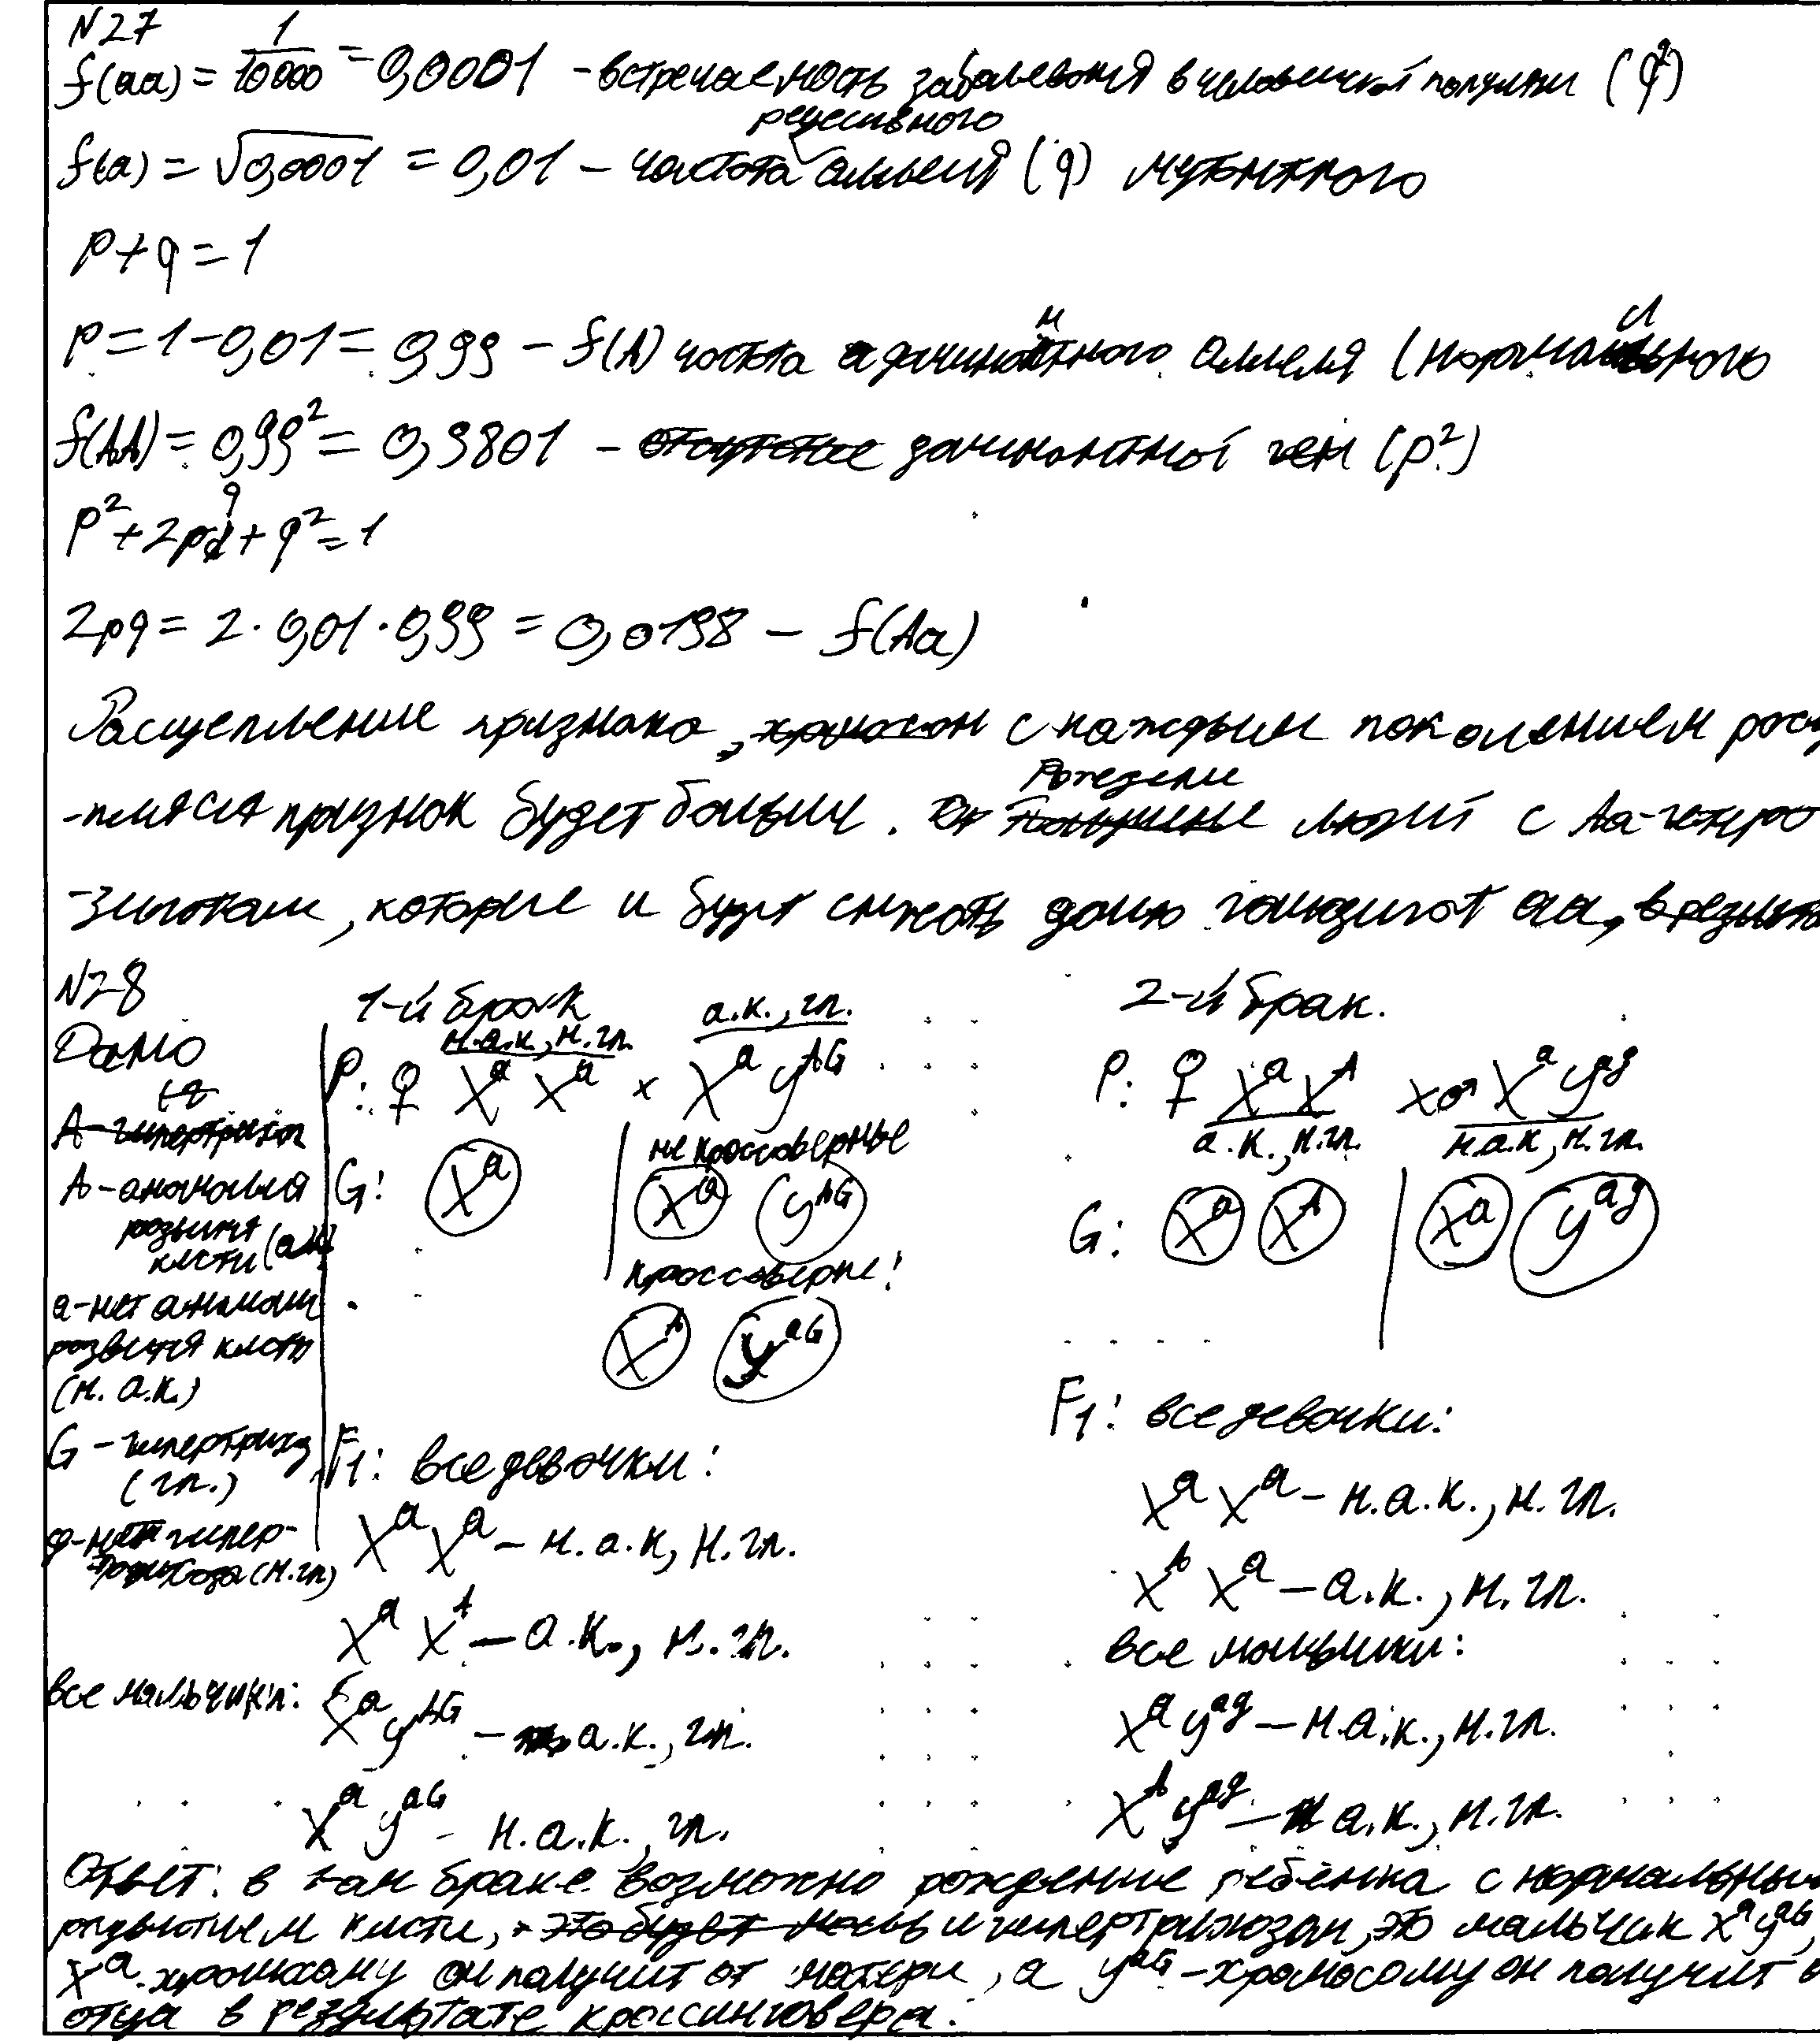 N27
f(aa) = 1/10000 = 0,0001 - встречаемость заболевания в человеческой популяции (q²)
f(a) = √0,0001 = 0,01 - частота рецессивного аллеля (q) мутантного
p+q=1
p=1-0,01=0,99 - f(A) частота доминантного аллеля (нормального
f(AA) = 0,99² = 0,9801 - доминантной ген (p²)
p²+2pq+q²=1
2pq = 2·0,01·0,99 = 0,0198 - f(Aa)
Расщепление признака, с каждым поколением расщ
-пляся признак будет больше. людей с Aa-гетеро
-зиготам, которые и будут снижать долю гомозигот aa,
N28
Дано
A-аномалия
развития
кисти (а.к)
a-нет аномалии
развития кисти
(н.а.к.)
G-гипертрихоз
(гп.)
g-нет гипер-
трихоза (н.гп)
1-й брак
н.а.к., н.гп.   а.к., гп.
P: ♀ XᵃXᵃ x XᵃYᴬᴳ
не кроссоверные
G: Xᵃ | Xᵃ Yᴬᴳ
кроссоверные:
Xᴬ Yᵃᴳ
F1: все девочки:
XᵃXᵃ - н.а.к, н.гп.
XᵃXᴬ - а.к., н.гп.
все мальчики: XᵃYᴬᴳ - а.к., гп.
XᵃYᵃᴳ - н.а.к., гп.
2-й брак.
P: ♀ XᵃXᴬ x ♂ Xᵃyᵃᵍ
а.к., н.гп.   н.а.к, н.гп.
G: Xᵃ Xᴬ | Xᵃ Yᵃᵍ
F1: все девочки:
XᵃXᵃ - н.а.к., н.гп.
XᴬXᵃ - а.к., н.гп.
все мальчики:
XᵃYᵃᵍ - н.а.к., н.гп.
XᴬYᵃᵍ - а.к., н.гп.
Ответ: в 1-ом браке возможно рождение ребёнка с нормальным
развитием кисти, и гипертрихозом, это мальчик XᵃYᵃᴳ,
Xᵃ-хромосому он получит от матери, а Yᵃᴳ-хромосому он получит о
отца в результате кроссинговера.